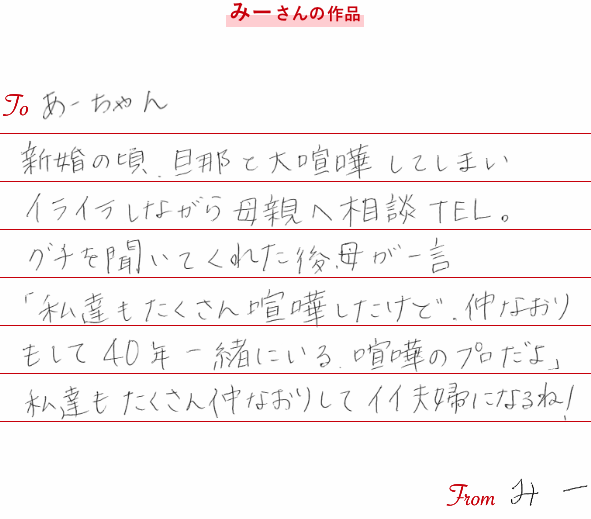 みーさんの作品
To あーちゃん
新婚の頃、旦那と大喧嘩してしまい
イライラしながら母親へ相談TEL。
グチを聞いてくれた後、母が一言
「私達もたくさん喧嘩したけど、仲なおり
もして40年一緒にいる、喧嘩のプロだよ」
私達もたくさん仲なおりしてイイ夫婦になるね!
From みー